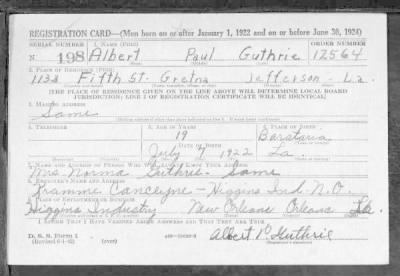 REGISTRATION CARD—(Men born on or after January 1, 1922 and on or before June 30, 1924)
SERIAL NUMBER 1. NAME (Print) ORDER NUMBER
N 198 Albert Paul Guthrie 12564
2. PLACE OF RESIDENCE (Print)
1132 Fifth St. Gretna Jefferson La.
[THE PLACE OF RESIDENCE GIVEN ON THE LINE ABOVE WILL DETERMINE LOCAL BOARD
JURISDICTION; LINE 2 OF REGISTRATION CERTIFICATE WILL BE IDENTICAL]
3. MAILING ADDRESS
Same
4. TELEPHONE 5. AGE IN YEARS 6. PLACE OF BIRTH
19 Barataria
DATE OF BIRTH
July 7 1922 La.
7. NAME AND ADDRESS OF PERSON WHO WILL ALWAYS KNOW YOUR ADDRESS
Mrs. Norma Guthrie - Same
8. EMPLOYER'S NAME AND ADDRESS
Higgins Ind. N.O.
9. PLACE OF EMPLOYMENT OR BUSINESS
Higgins Industry New Orleans Orleans La.
I AFFIRM THAT I HAVE VERIFIED ABOVE ANSWERS AND THAT THEY ARE TRUE.
D. S. S. Form 1
(Revised 6-1-42) (over)
Albert P. Guthrie
(Registrant's signature)